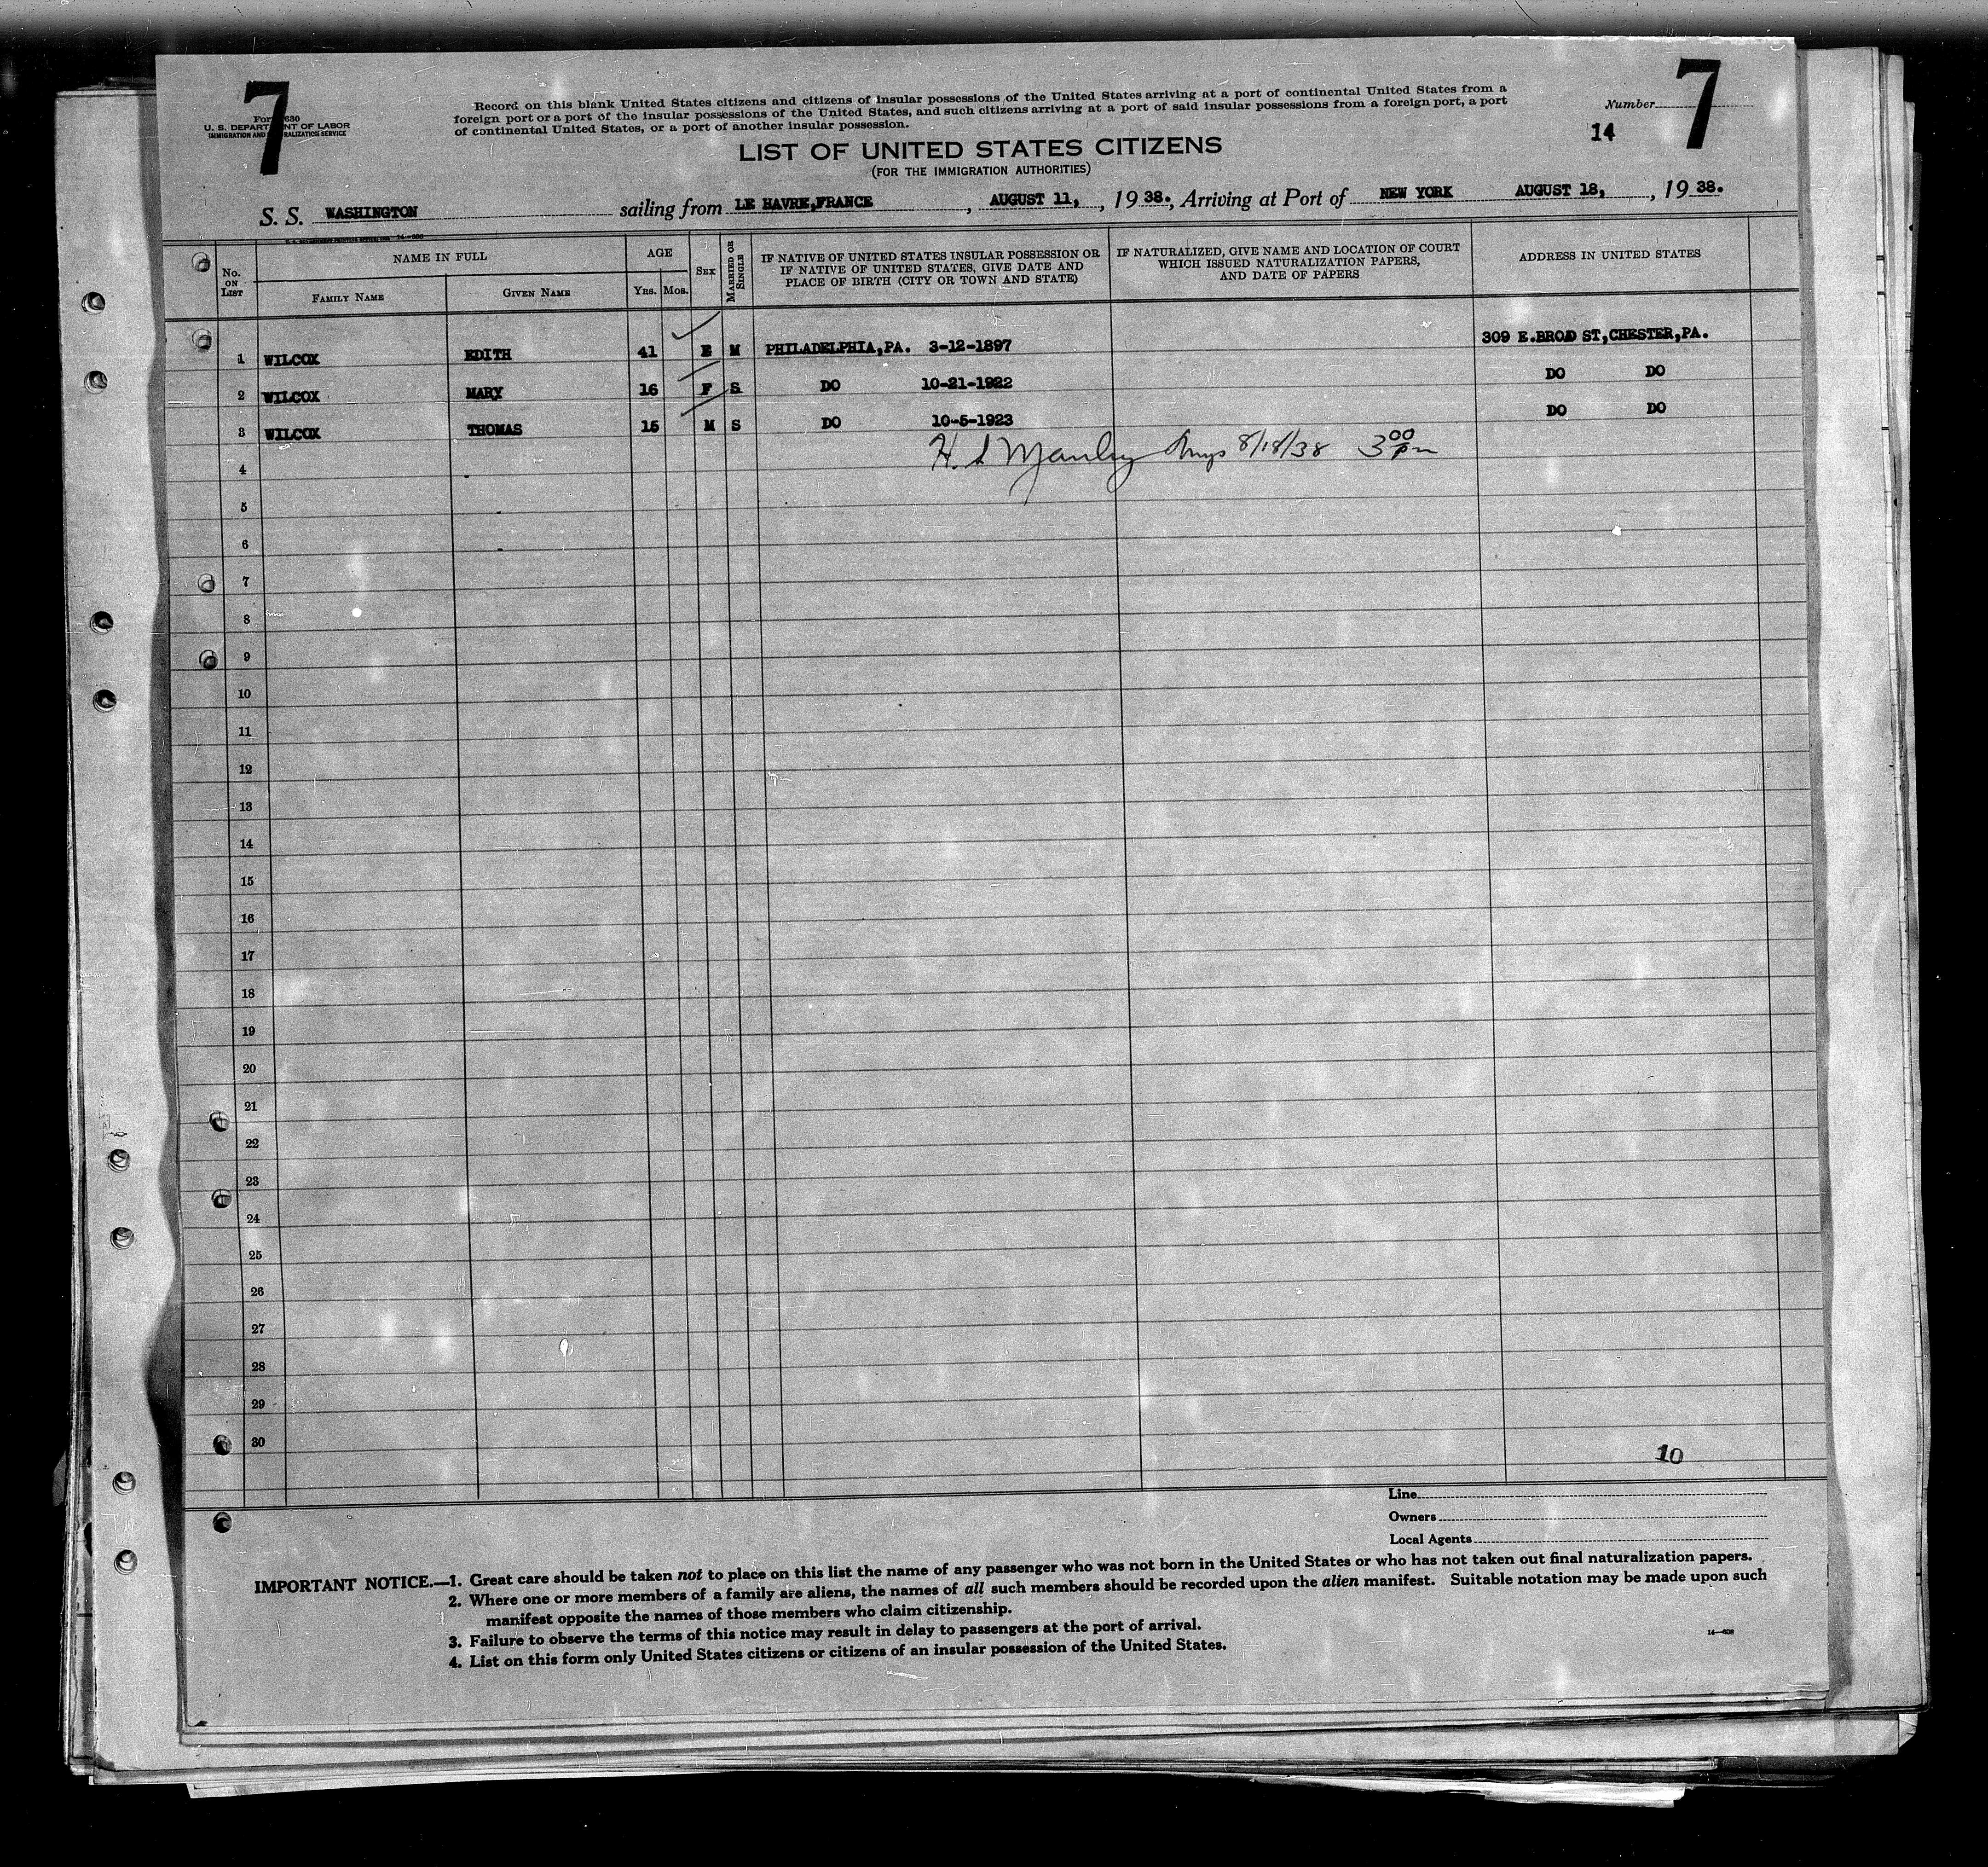 7
7
Form 630
U. S. DEPARTMENT OF LABOR
IMMIGRATION AND NATURALIZATION SERVICE
Record on this blank United States citizens and citizens of insular possessions of the United States arriving at a port of continental United States from a
foreign port or a port of the insular possessions of the United States, and such citizens arriving at a port of said insular possessions from a foreign port, a port
of continental United States, or a port of another insular possession.
Number
14
LIST OF UNITED STATES CITIZENS
(FOR THE IMMIGRATION AUTHORITIES)
S. S. WASHINGTON sailing from LE HAVRE,FRANCE, AUGUST 11,, 19 38., Arriving at Port of NEW YORK AUGUST 18,, 19 38.
No. ON LIST
NAME IN FULL
FAMILY NAME
GIVEN NAME
AGE
YRS.
MOS.
SEX
MARRIED OR SINGLE
IF NATIVE OF UNITED STATES INSULAR POSSESSION OR
IF NATIVE OF UNITED STATES, GIVE DATE AND
PLACE OF BIRTH (CITY OR TOWN AND STATE)
IF NATURALIZED, GIVE NAME AND LOCATION OF COURT
WHICH ISSUED NATURALIZATION PAPERS,
AND DATE OF PAPERS
ADDRESS IN UNITED STATES
1 WILCOX EDITH 41 M PHILADELPHIA,PA. 3-12-1897 309 E.BROAD ST,CHESTER,PA.
2 WILCOX MARY 16 F S DO 10-21-1922 DO DO
3 WILCOX THOMAS 15 M S DO 10-5-1923 DO DO
4 H. S Manley 8/18/38 3 00 pm
5
6
7
8
9
10
11
12
13
14
15
16
17
18
19
20
21
22
23
24
25
26
27
28
29
30
10
Line
Owners
Local Agents
IMPORTANT NOTICE.—1. Great care should be taken not to place on this list the name of any passenger who was not born in the United States or who has not taken out final naturalization papers.
2. Where one or more members of a family are aliens, the names of all such members should be recorded upon the alien manifest. Suitable notation may be made upon such
manifest opposite the names of those members who claim citizenship.
3. Failure to observe the terms of this notice may result in delay to passengers at the port of arrival.
4. List on this form only United States citizens or citizens of an insular possession of the United States.